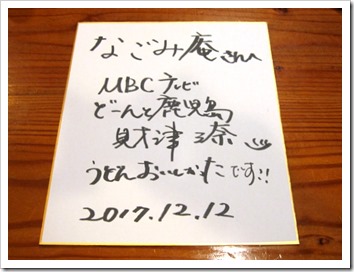 なごみ庵さんへ
MBCテレビ
どーんと鹿児島
財津 奈
うどんおいしかったです!!
2017.12.12